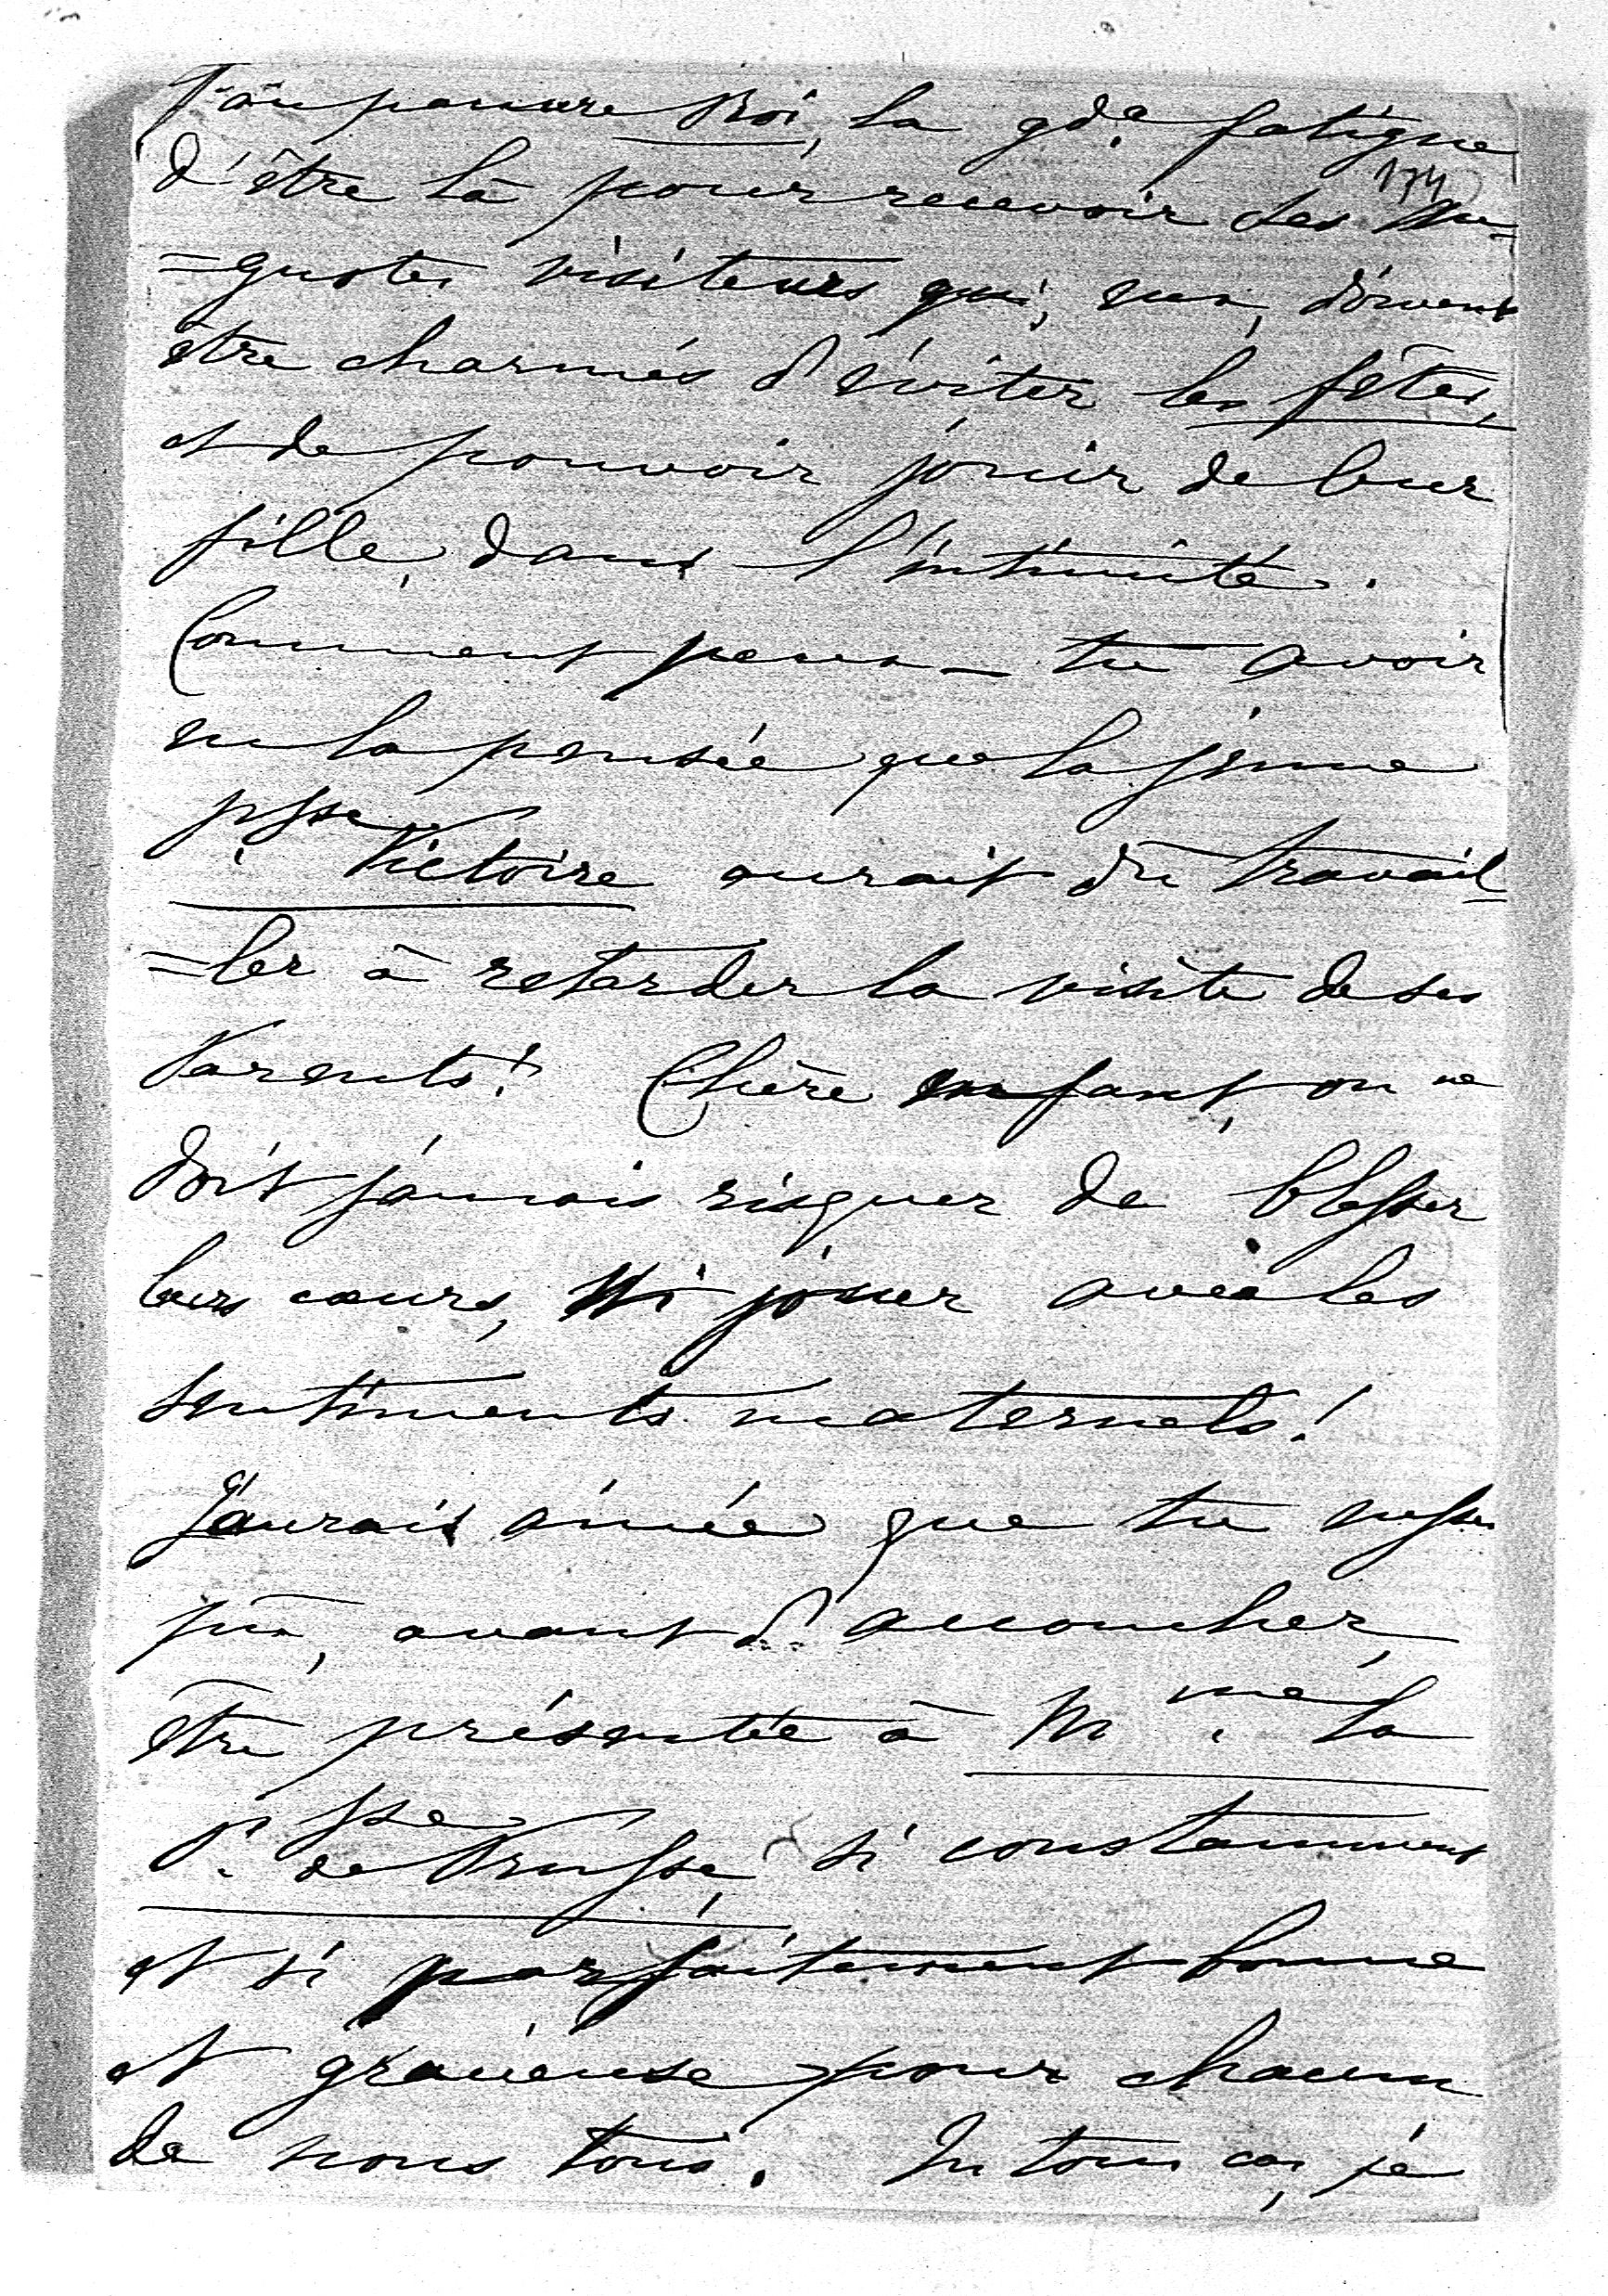 au pauvre Roi, la gde. fatigue
174
d'être là pour recevoir les Au=
=gustes visiteurs qui, eux, doivent
être charmés d'éviter les fêtes,
et de pouvoir jouir de leur
fille, dans l'intimité.
Comment peux-tu avoir
eu la pensée que la jeune
psse. Victoire aurait dû travail=
=ler à retarder la visite de ses
Parents! Chère enfant, on ne
doit jamais risquer de blesser
leurs cœurs, ni jouer avec les
sentiments maternels!
J'aurais aimée que tu eusses
pû, avant d'accoucher,
être présentée à Mme. la
Psse. de Prusse, si constamment
et si parfaitement bonne
et gracieuse pour chacun
de nous tous. En tous cas, je